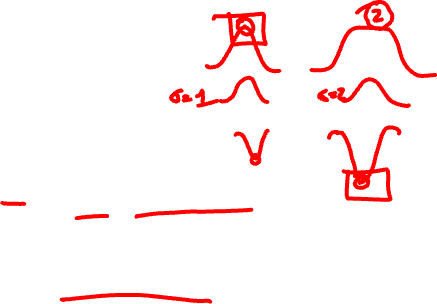 2
σ=1 σ=2